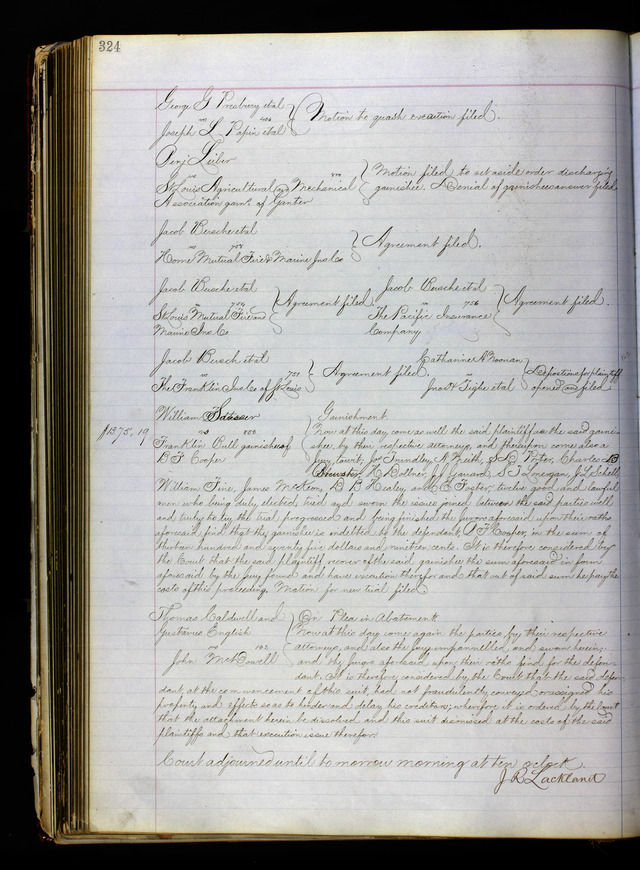 324
George G Presbury etal
vs 406
Joseph L. Papin etal
Motion to quash execution filed.
Benj Leiber
vs
St Louis Agricultural and Mechanical
Association garn. of Ganter
Motion filed to set aside order discharging
garnishee. Denial of garnishees answer filed
Jacob Busch etal
vs
Home Mutual Fire & Marine Ins Co
Agreement filed.
Jacob Busch etal
vs
St Louis Mutual Fire and
Marine Ins Co
Agreement filed
Jacob Busch etal
vs 756
The Pacific Insurance
Company
Agreement filed.
Jacob Busch etal
vs
The Franklin Ins Co of St Louis
Agreement filed.
Catharine Noonan
vs
Jno H Tighe etal
Depositions for plaintiff
opened and filed
William
vs
Franklin Bell garnishee of
B F Cooper
$1375.19
Garnishment
Now at this day come as well the said plaintiff as the said garni-
shee, by their respective attorneys, and thereupon come also a
jury, to wit, Jos Trundley, N. Keith, S D Porter, Charles
Brewster, H Bollner, S T
William Fine, James McKeon, B B Healey, and C E Foster, twelve good and lawful
men who being duly elected, tried and sworn the issues joined between the said parties well
and truly to try the trial progressed and being finished the jurors aforesaid upon their oaths
aforesaid find that the garnishee is indebted to the defendant, B F Cooper, in the sum of
thirteen hundred and seventy five dollars and nineteen cents. It is therefore considered by
the Court that the said plaintiff recover of the said garnishee the sum aforesaid in form
aforesaid by the jury found and have execution therefor and that out of said sum he pay the
costs of this proceeding. Motion for new trial filed
Thomas Caldwell and
Gustavus English
vs 102
John McDowell
On Plea in Abatement.
Now at this day come again the parties by their respective
attorneys, and also the jury impannelled and sworn herein;
and the jurors aforesaid upon their oaths find for the defen-
dant. It is therefore considered by the Court that the said defen
dant, at the commencement of this suit, had not fraudulently conveyed or assigned his
property and effects so as to hinder and delay his creditors; wherefore it is ordered by the Court
that the attachment herein be dissolved and this suit dismissed at the costs of the said
plaintiffs and that execution issue therefor.
Court adjourned until to morrow morning at ten o'clock.
J R Lackland